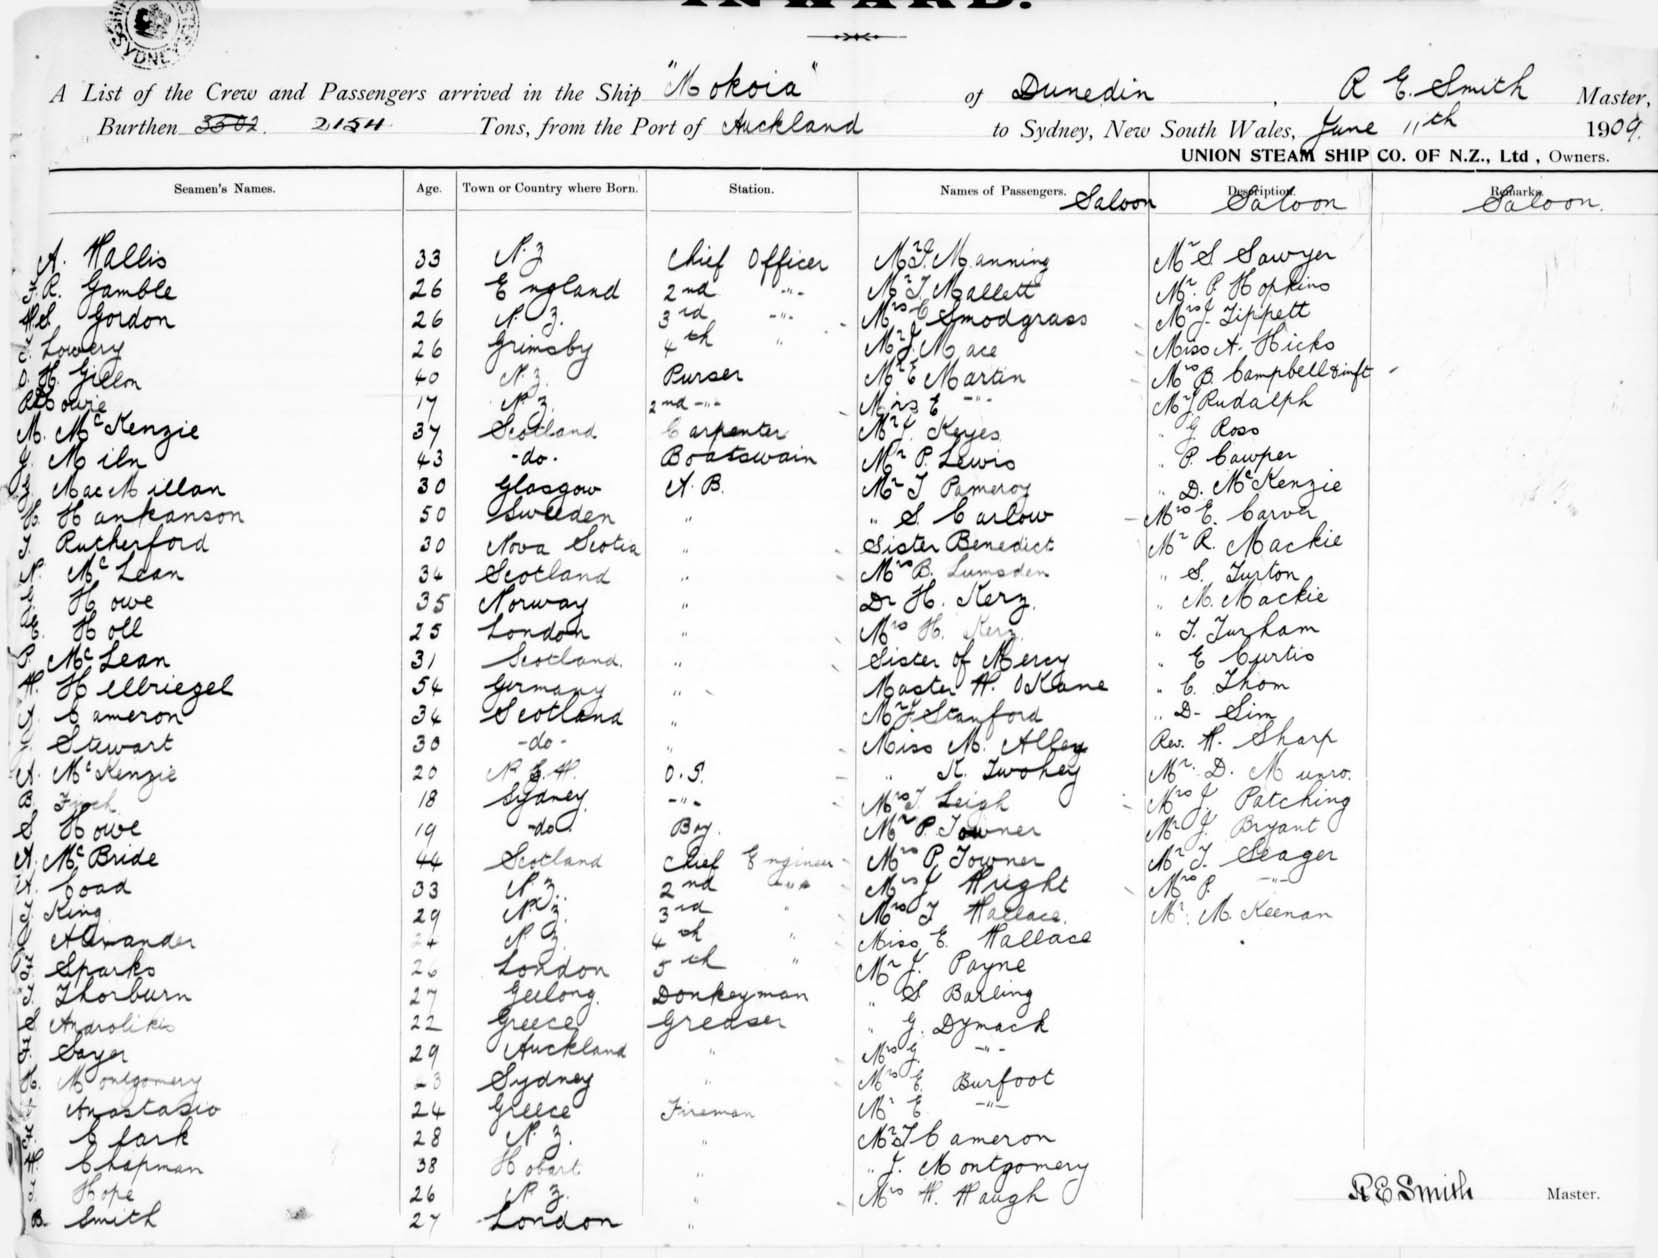 INWARD.
SYDNEY
A List of the Crew and Passengers arrived in the Ship "Mokoia" of Dunedin, R E. Smith Master,
Burthen 3502. 2154 Tons, from the Port of Auckland to Sydney, New South Wales, June 11th 1909.
UNION STEAM SHIP CO. OF N.Z., Ltd, Owners.
Seamen's Names. Age. Town or Country where Born. Station. Names of Passengers. Description. Remarks.
Saloon Saloon Saloon.
A. Hallis 33 N.Z Chief Officer Mr J. Manning Mr S Sawyer
R. Gamble 26 England 2nd -"- Mr T Mallett Mr. P Hopkins
H.S. Gordon 26 N.Z. 3rd -"- Mrs E Smodgrass Mrs J. Tippett
Lowery 26 Grimsby 4th " Mr J. Mace Miss A. Hicks
H. Gillon 40 N.Z. Purser Mr E Martin Mrs B. Campbell & inft
17 N.Z. 2nd -"- Mrs E -"- Mr J Rudalph
M. McKenzie 37 Scotland Carpenter Mr J. Keyes " G Ross
Miln 43 -do- Boatswain Mr P. Lewis " P. Cawper
MacMillan 30 Glasgow A.B. Mr T Pameroy " D. McKenzie
H. Hankanson 50 Sweeden " " S. Carlow Mrs E. Carver
T. Rutherford 30 Nova Scotia " Sister Benedict Mr R. Mackie
N. McLean 34 Scotland " Mrs B. Lumsden " S. Turton
Howe 35 Norway " Dr H. Kerz. " M. Mackie
E. Holl 25 London " Mrs H. Kerz. " T. Turham
P. McLean 31 Scotland. " Sister of Mercy " E Curtis
H. Hellriegel 54 Germany " Master H. OKane " C. Thom
A. Cameron 34 Scotland " Mr J Stanford " D- Sim
Stewart 30 -do- " Miss M. Alley Rev. H. Sharp
A. McKenzie 20 O.S. " K. Twohey Mr. D. Munro.
B. Finch 18 Sydney -"- Mrs T. Leigh Mrs J. Patching
S Howe 19 -do- Boy. Mr P. Towner Mr J. Bryant
A. McBride 44 Scotland Chief Engineer Mrs P. Towner Mr T. Seager
A. Coad 33 N.Z. 2nd -"- Mrs J Hright Mrs P. -"-
King 29 N.Z. 3rd " Mrs T Wallace. Mr. M. Keenan
Alexander 24 N.Z. 4th " Miss E. Wallace
Sparks 26 London 5th " Mr J. Payne
Thorburn 27 Geelong. Donkeyman " S Barling
S. Androlikis 22 Greece Greaser " G. Dymack
Sayer 29 Auckland " Mrs G. -"-
H. Montgomery 23 Sydney " Mrs E. Burfoot
Anastasio 24 Greece Fireman Mr E -"-
Clark 28 N.Z. " Mr T Cameron
H. Chapman 38 Hobart " " J. Montgomery
Hope 26 N.Z. " Mrs H. Haugh
B. Smith 27 London "
R E Smith Master.